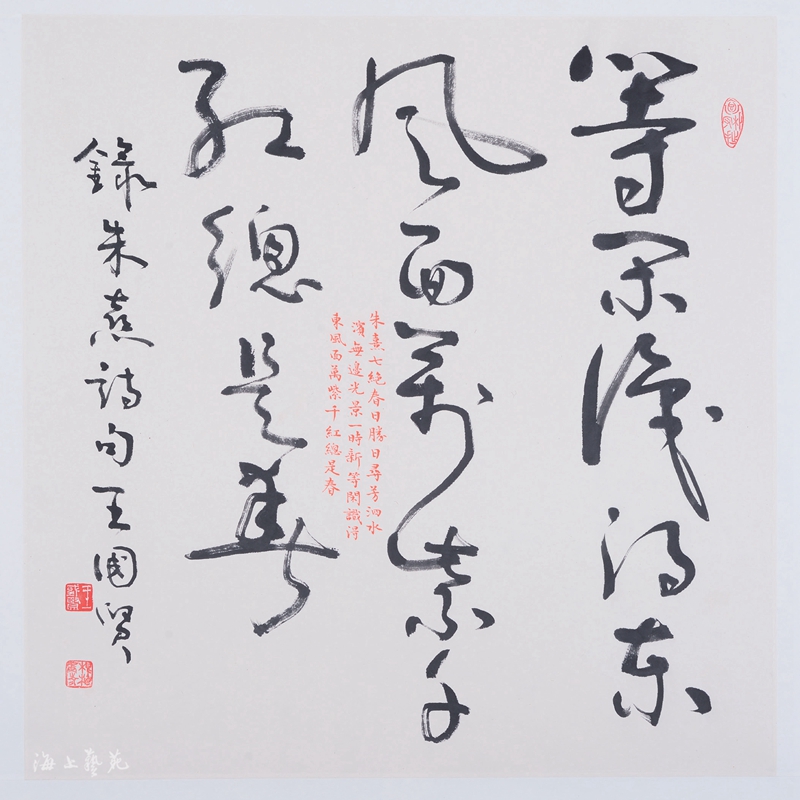 等闲识得东
风面萬紫千
红總是春
朱熹七絶春日勝日尋芳泗水
濱無邊光景一時新等閑識得
東風面萬紫千红總是春
錄朱熹詩句王國賢
海上藝苑